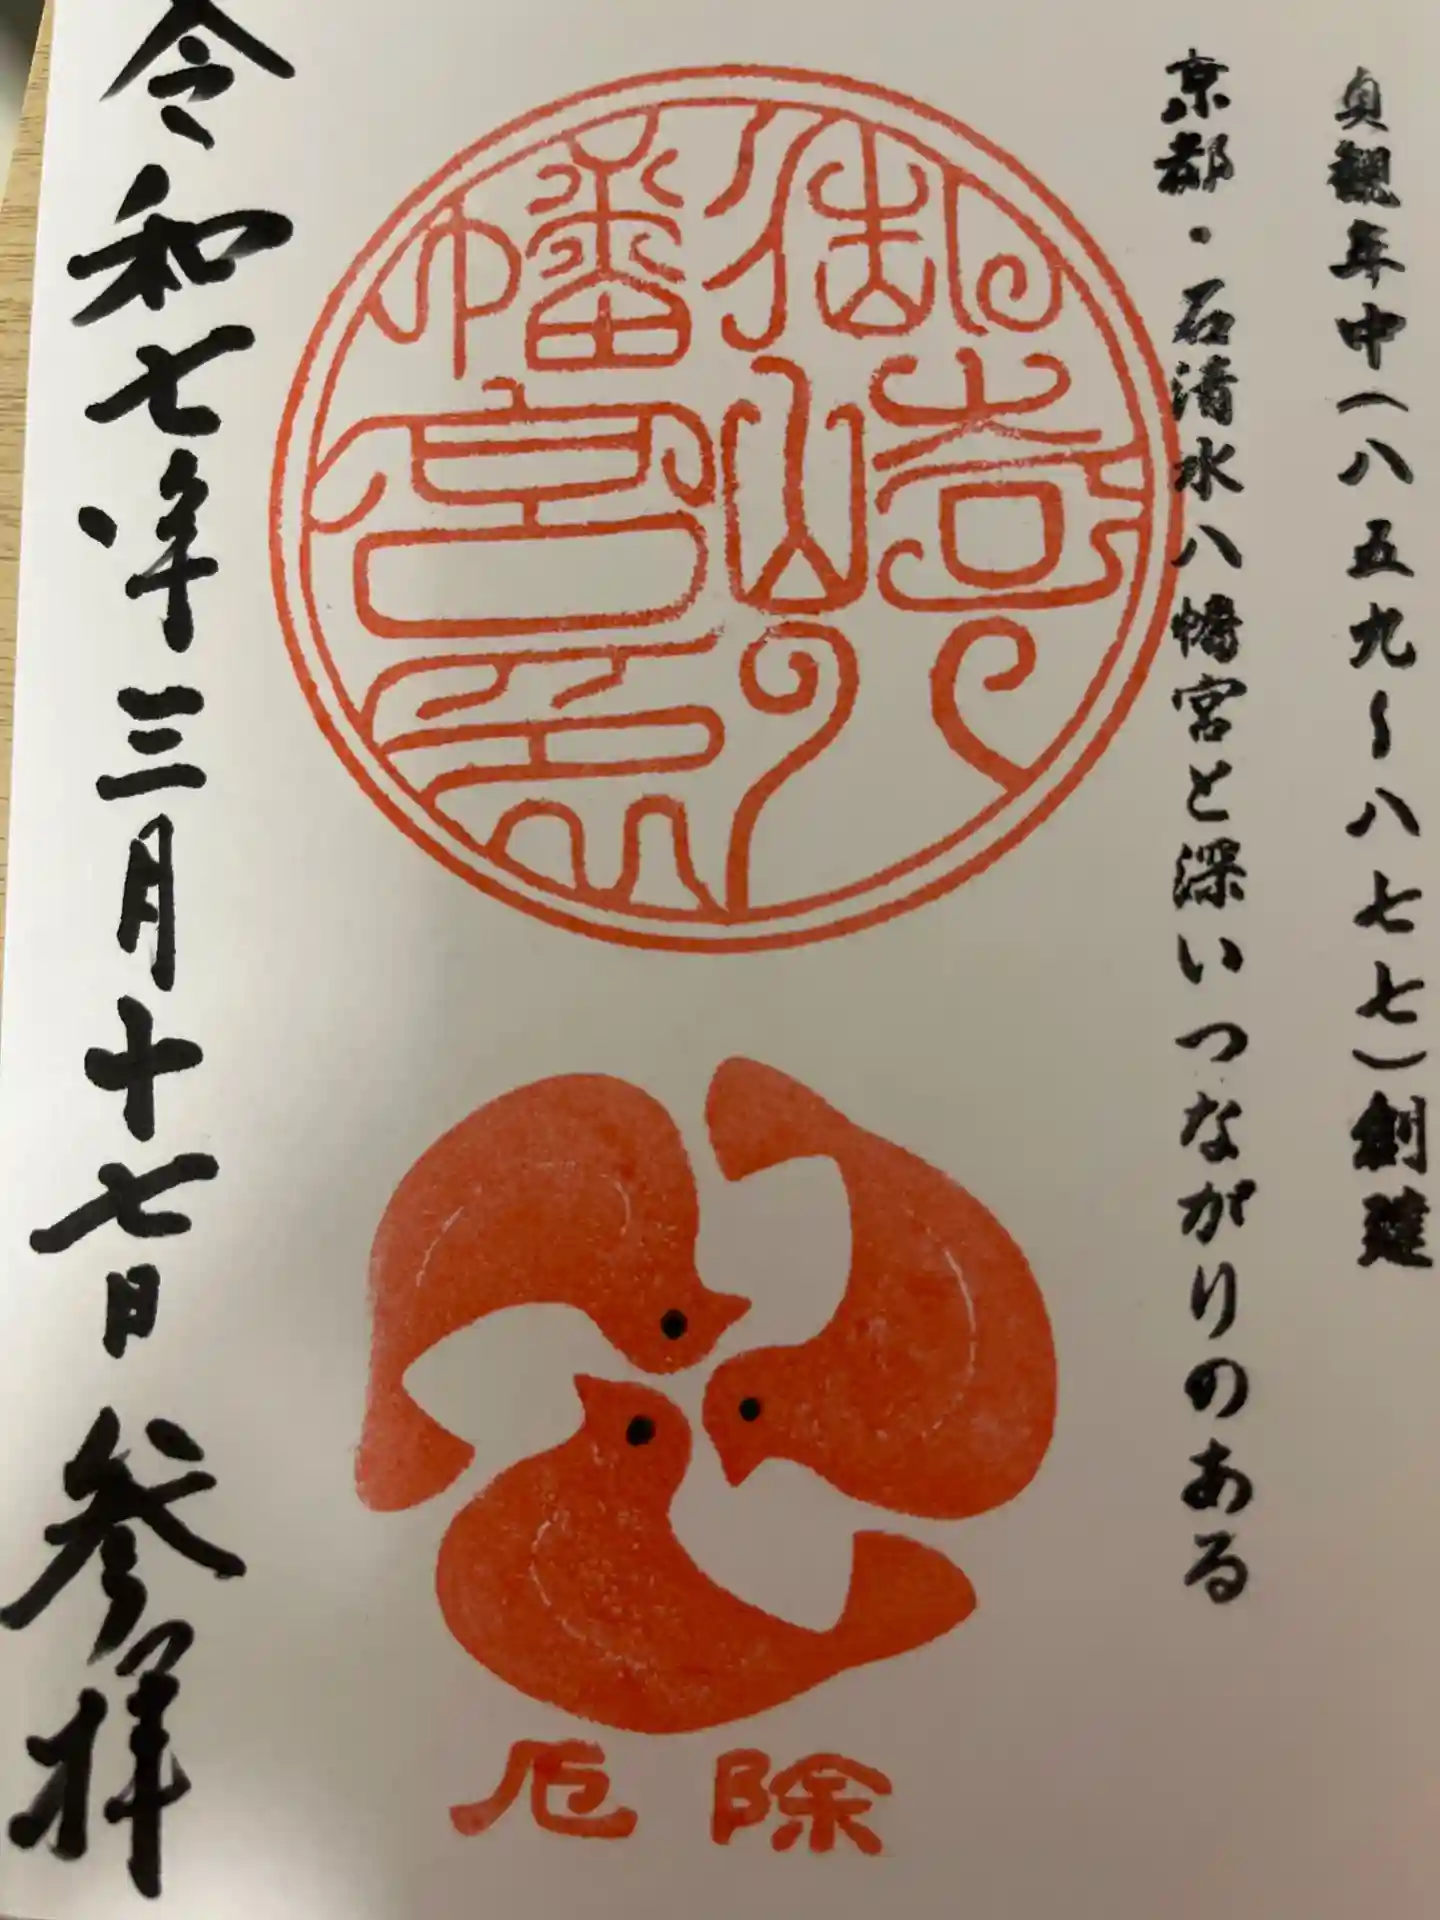 貞観年中（八五九〜八七七）創建
京都・石清水八幡宮と深いつながりのある
御崎八
幡宮印
厄除
令和七年三月十七日 参拝